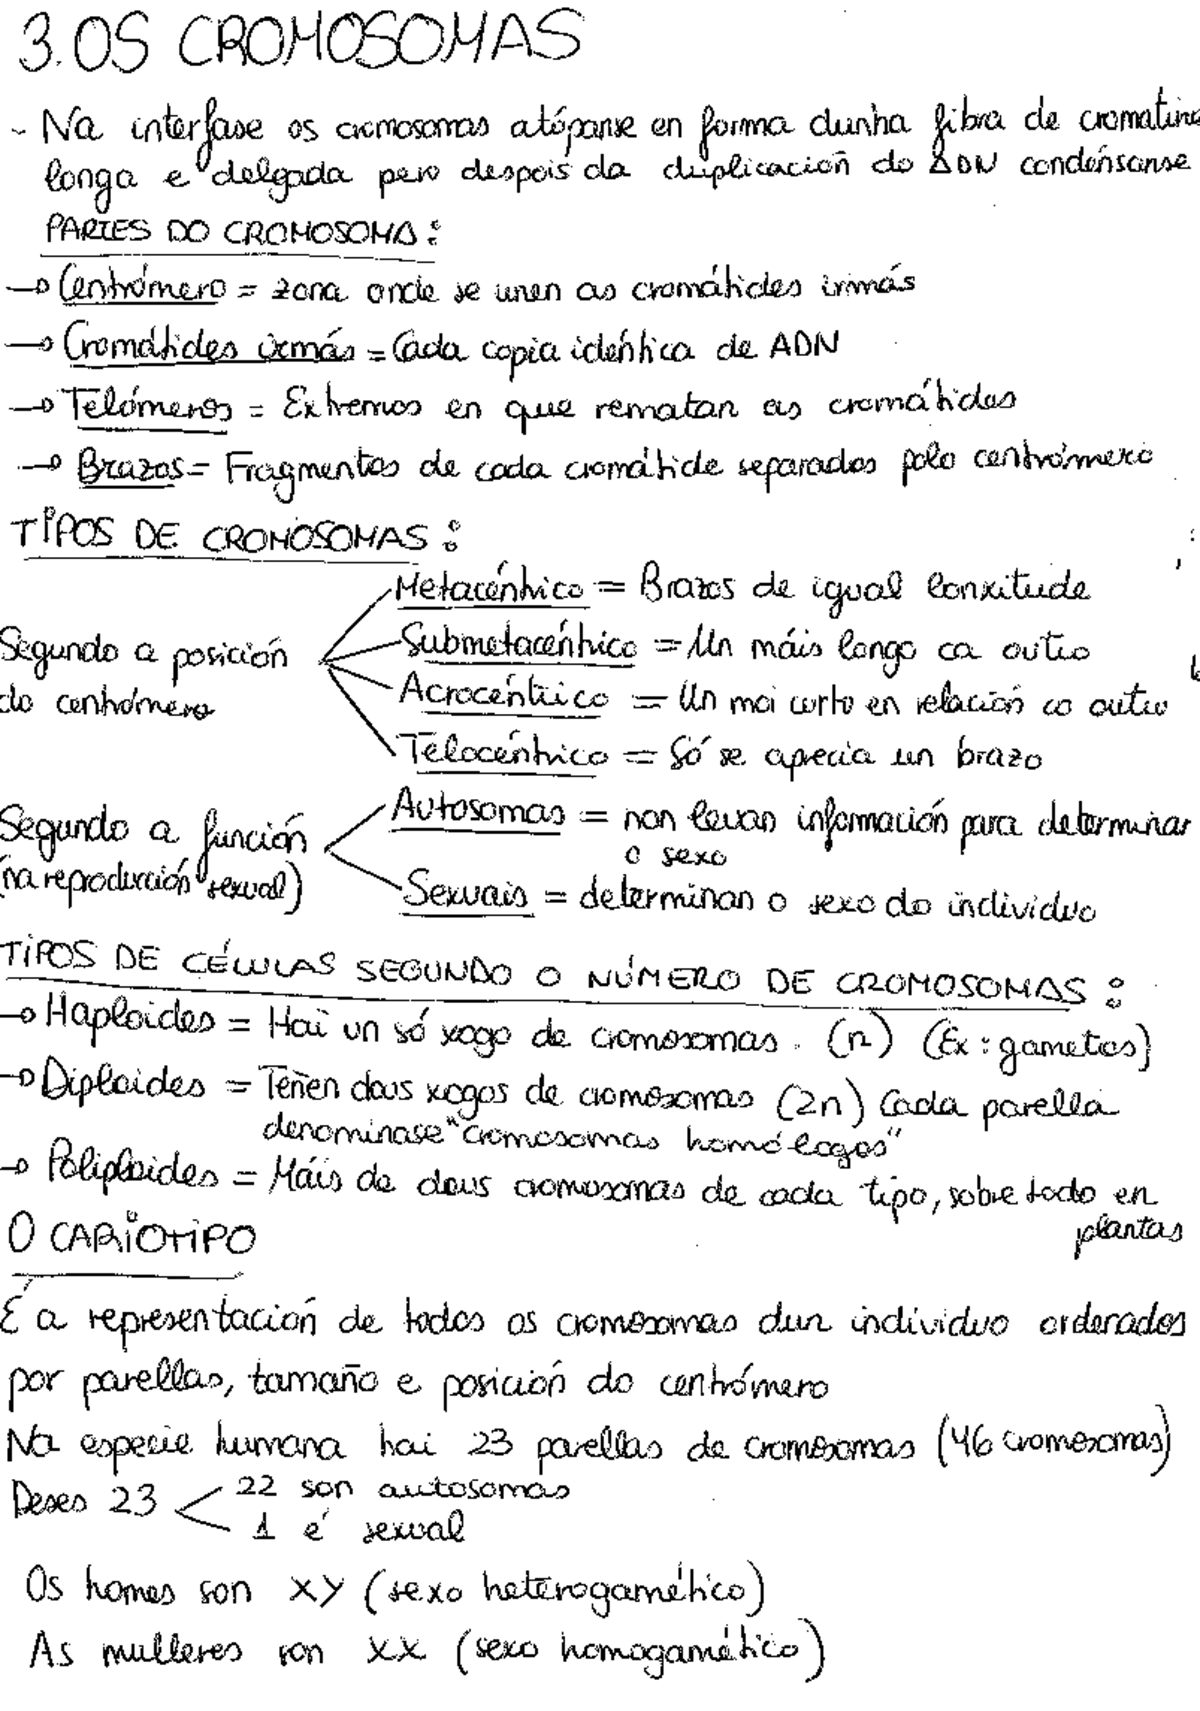 3. OS CROMOSOMAS
- Na interfase os cromosomas atópanse en forma dunha fibra de cromatina
longa e delgada pero despois da duplicación do ADN condénsanse
PARTES DO CROMOSOMA:
→ Centrómero = zona onde se unen as cromátides irmás
→ Cromátides irmás = Cada copia idéntica de ADN
→ Telómeros = Extremos en que rematan as cromátidas
→ Brazos = Fragmentos de cada cromátide separados polo centrómero
TIPOS DE CROMOSOMAS:
Metacéntrico = Brazos de igual lonxitude
Segundo a posición
do centrómero
Submetacéntrico = Un máis longo ca outro
Acrocéntrico = Un moi curto en relación co outro
Telocéntrico = Só se aprecia un brazo
Segundo a función
(na reprodución sexual)
Autosomas = non levan información para determinar
o sexo
Sexuais = determinan o sexo do individuo
TIPOS DE CÉLULAS SEGUNDO O NÚMERO DE CROMOSOMAS:
→ Haploides = Hai un só xogo de cromosomas. (n) (Ex: gametos)
→ Diploides = Teñen dous xogos de cromosomas (2n) Cada parella
denominase "cromosomas homólogos"
→ Poliploides = Máis de dous cromosomas de cada tipo, sobre todo en
plantas
O CARIOTIPO
É a representación de todos os cromosomas dun individuo ordenados
por parellas, tamaño e posición do centrómero
Na especie humana hai 23 parellas de cromosomas (46 cromosomas)
Deses 23
22 son autosomas
1 é sexual
Os homes son XY (sexo heterogamético)
As mulleres son XX (sexo homogamético)